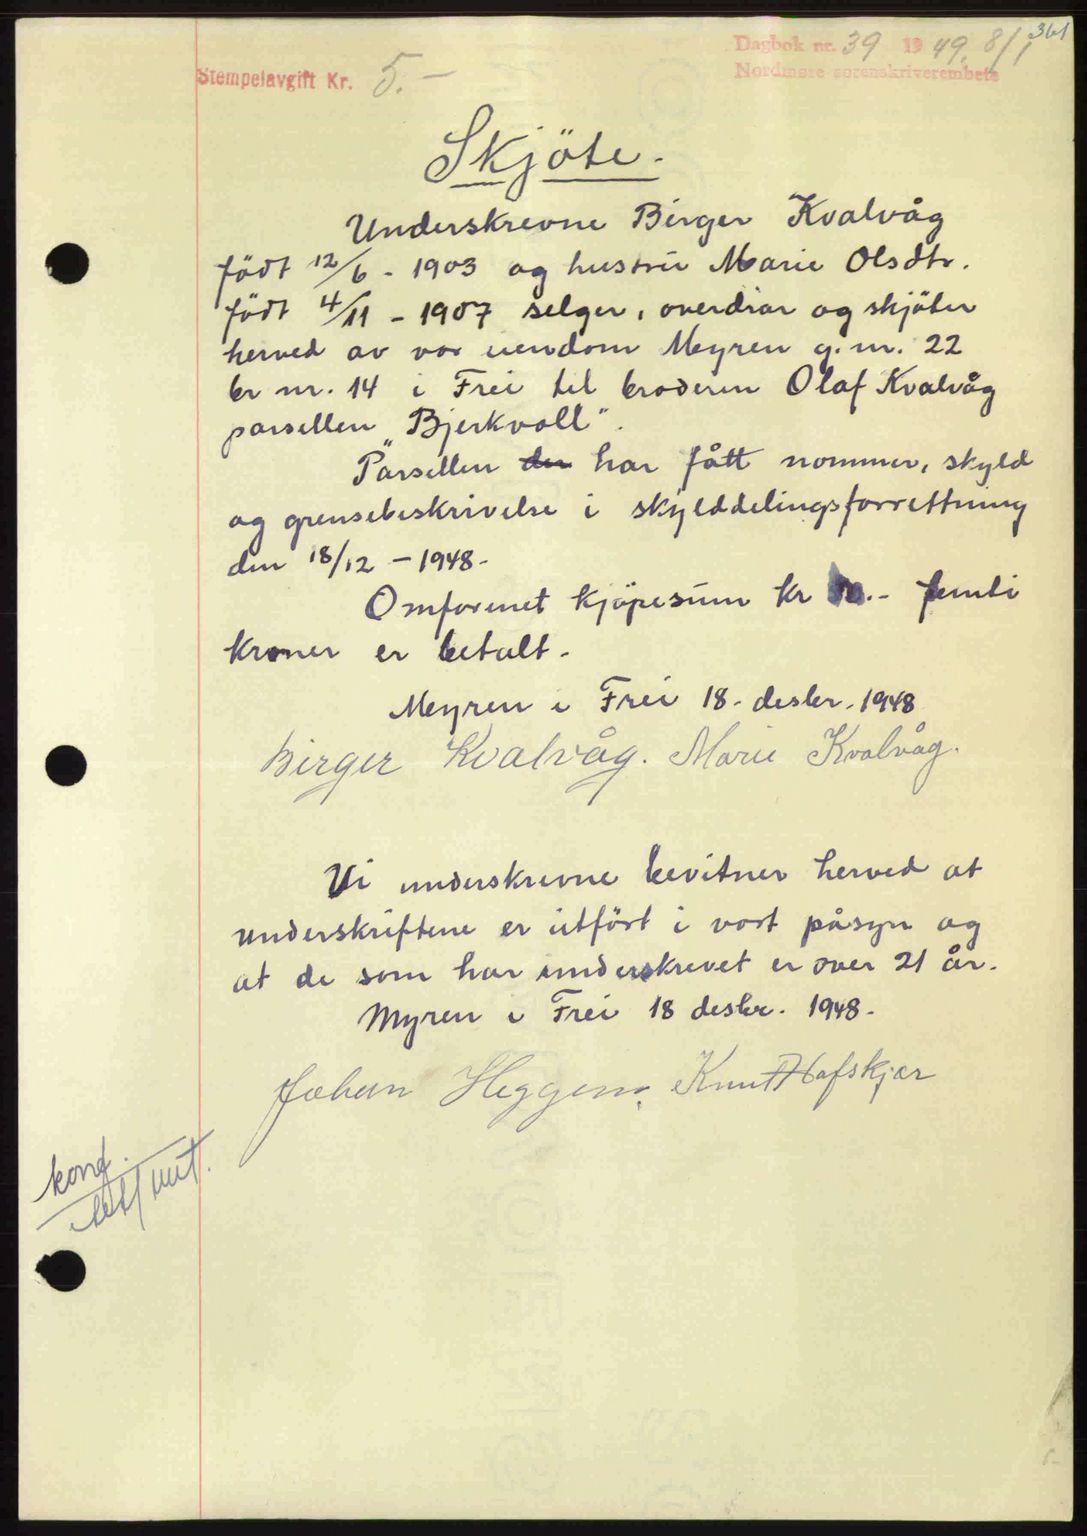 361
Dagbok nr. 39 1949, 8/1
Nordmøre sorenskriverembete
Stempelavgift Kr. 5.-
Skjöte.
Underskrevne Birger Kvalvåg
födt 12/6 - 1903 og hustru Marie Olsdtr.
födt 4/11 - 1907 selger, overdrar og skjöter
herved av vor eiendom Meyren g. nr. 22
br nr. 14 i Frei til broderen Olaf Kvalvåg
parsellen „Bjerkvoll".
Parsellen har fått nommer, skyld
og grensebeskrivelse i skylddelingsforrettning
den 18/12 - 1948.
Omforenet kjöpesum kr .- femti
kroner er betalt.
Meyren i Frei 18. desbr. 1948
Birger Kvalvåg. Marie Kvalvåg.
Vi underskrevne bevitner herved at
underskriftene er utfört i vort påsyn og
at de som har underskrevet er over 21 år.
Myren i Frei 18 desbr. 1948.
Johan Heggem, Knut Hafskjær
konf.